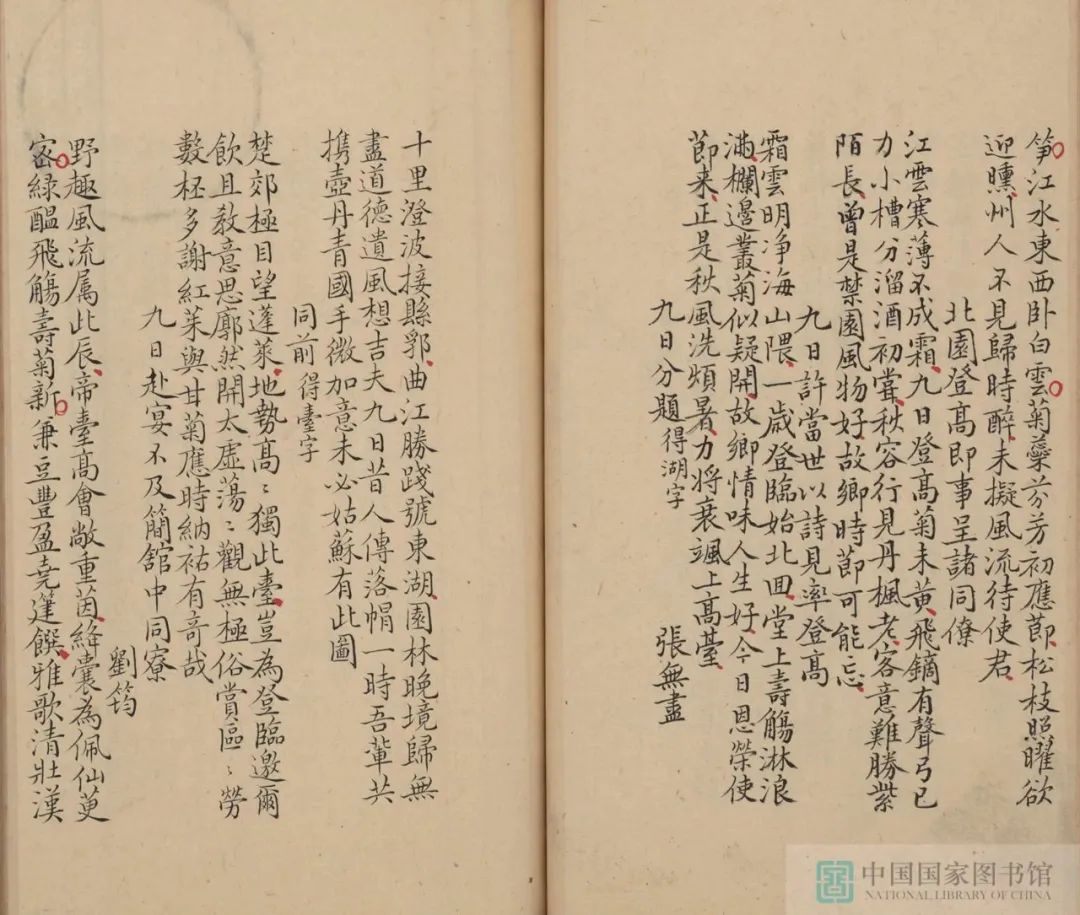 笋江水東西卧白雲菊蘂芬芳初應節松枝照曜欲
迎曛州人不見歸時醉未擬風流待使君
北園登高即事呈諸同僚
江雲寒薄不成霜九日登高菊未黄飛鏑有聲弓已
力小槽分溜酒初嘗秋容行見丹楓老客意難勝紫
陌長曾是禁園風物好故鄉時節可能忘
九日許當世以詩見率登高
霜雲明净海山隈一歳登臨始北回堂上壽觴淋浪
滿欄邊叢菊似疑開故鄉情味人生好今日恩榮使
節来正是秋風洗煩暑力將衰颯上高臺
九日分題得湖字
張無盡
十里澄波接縣郛曲江勝踐號東湖園林晚境歸無
盡道德遺風想吉夫九日昔人傳落帽一時吾輩共
携壺丹青國手微加意未必姑蘇有此圖
同前得臺字
楚郊極目望蓬萊地勢高〻獨此臺豈為登臨邀爾
飲且教意思廓然開太虚蕩〻觀無極俗賞區〻勞
數柸多謝紅茱與甘菊應時納祐有奇哉
九日赴宴不及簡舘中同寮
劉筠
野趣風流属此辰帝臺高會敞重茵絳囊為佩仙萸
密緑醖飛觴壽菊新兼豆豐盈堯篚饌雅歌清壯漢
中国国家图书馆
NATIONAL LIBRARY OF CHINA